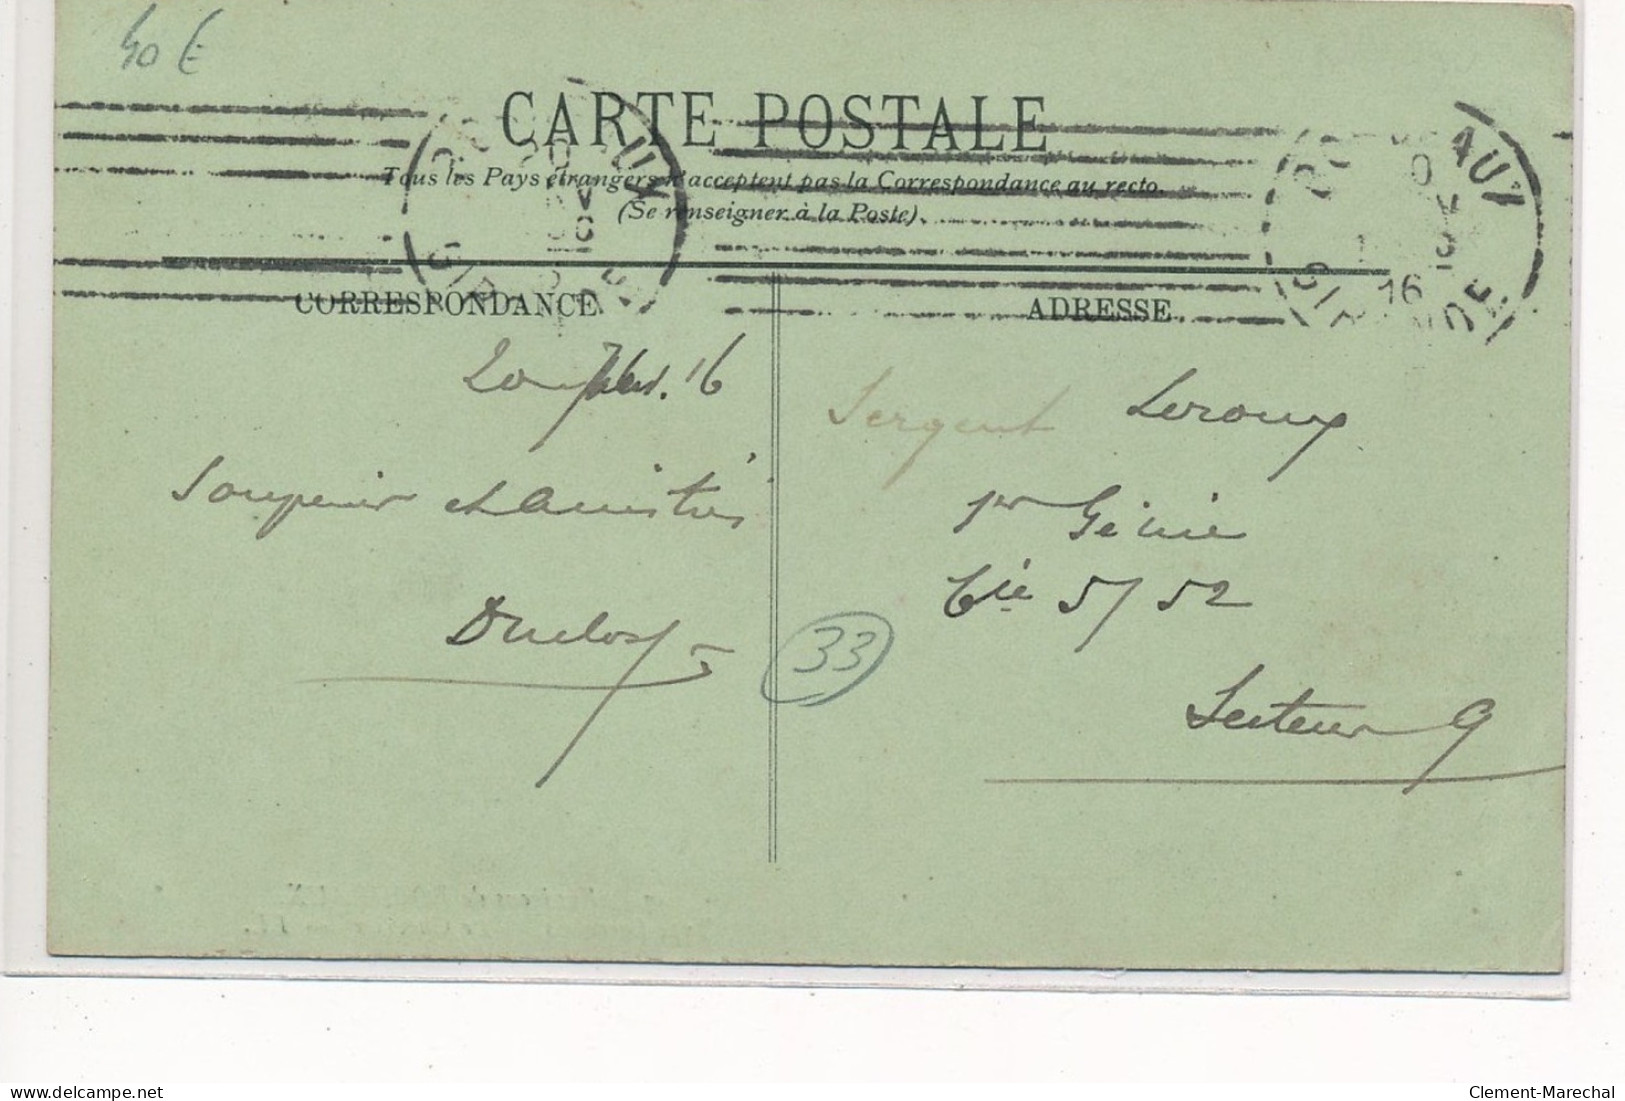 40 €
CARTE POSTALE
Tous les Pays étrangers n'acceptent pas la Correspondance au recto.
(Se renseigner à la Poste).
CORRESPONDANCE
20 16
Souvenir et amitiés
Duclos
ADRESSE
Sergent Leroux
1er Génie
Cie 5/52
Secteur 9
33
delcampe.net
Clement-Marechal